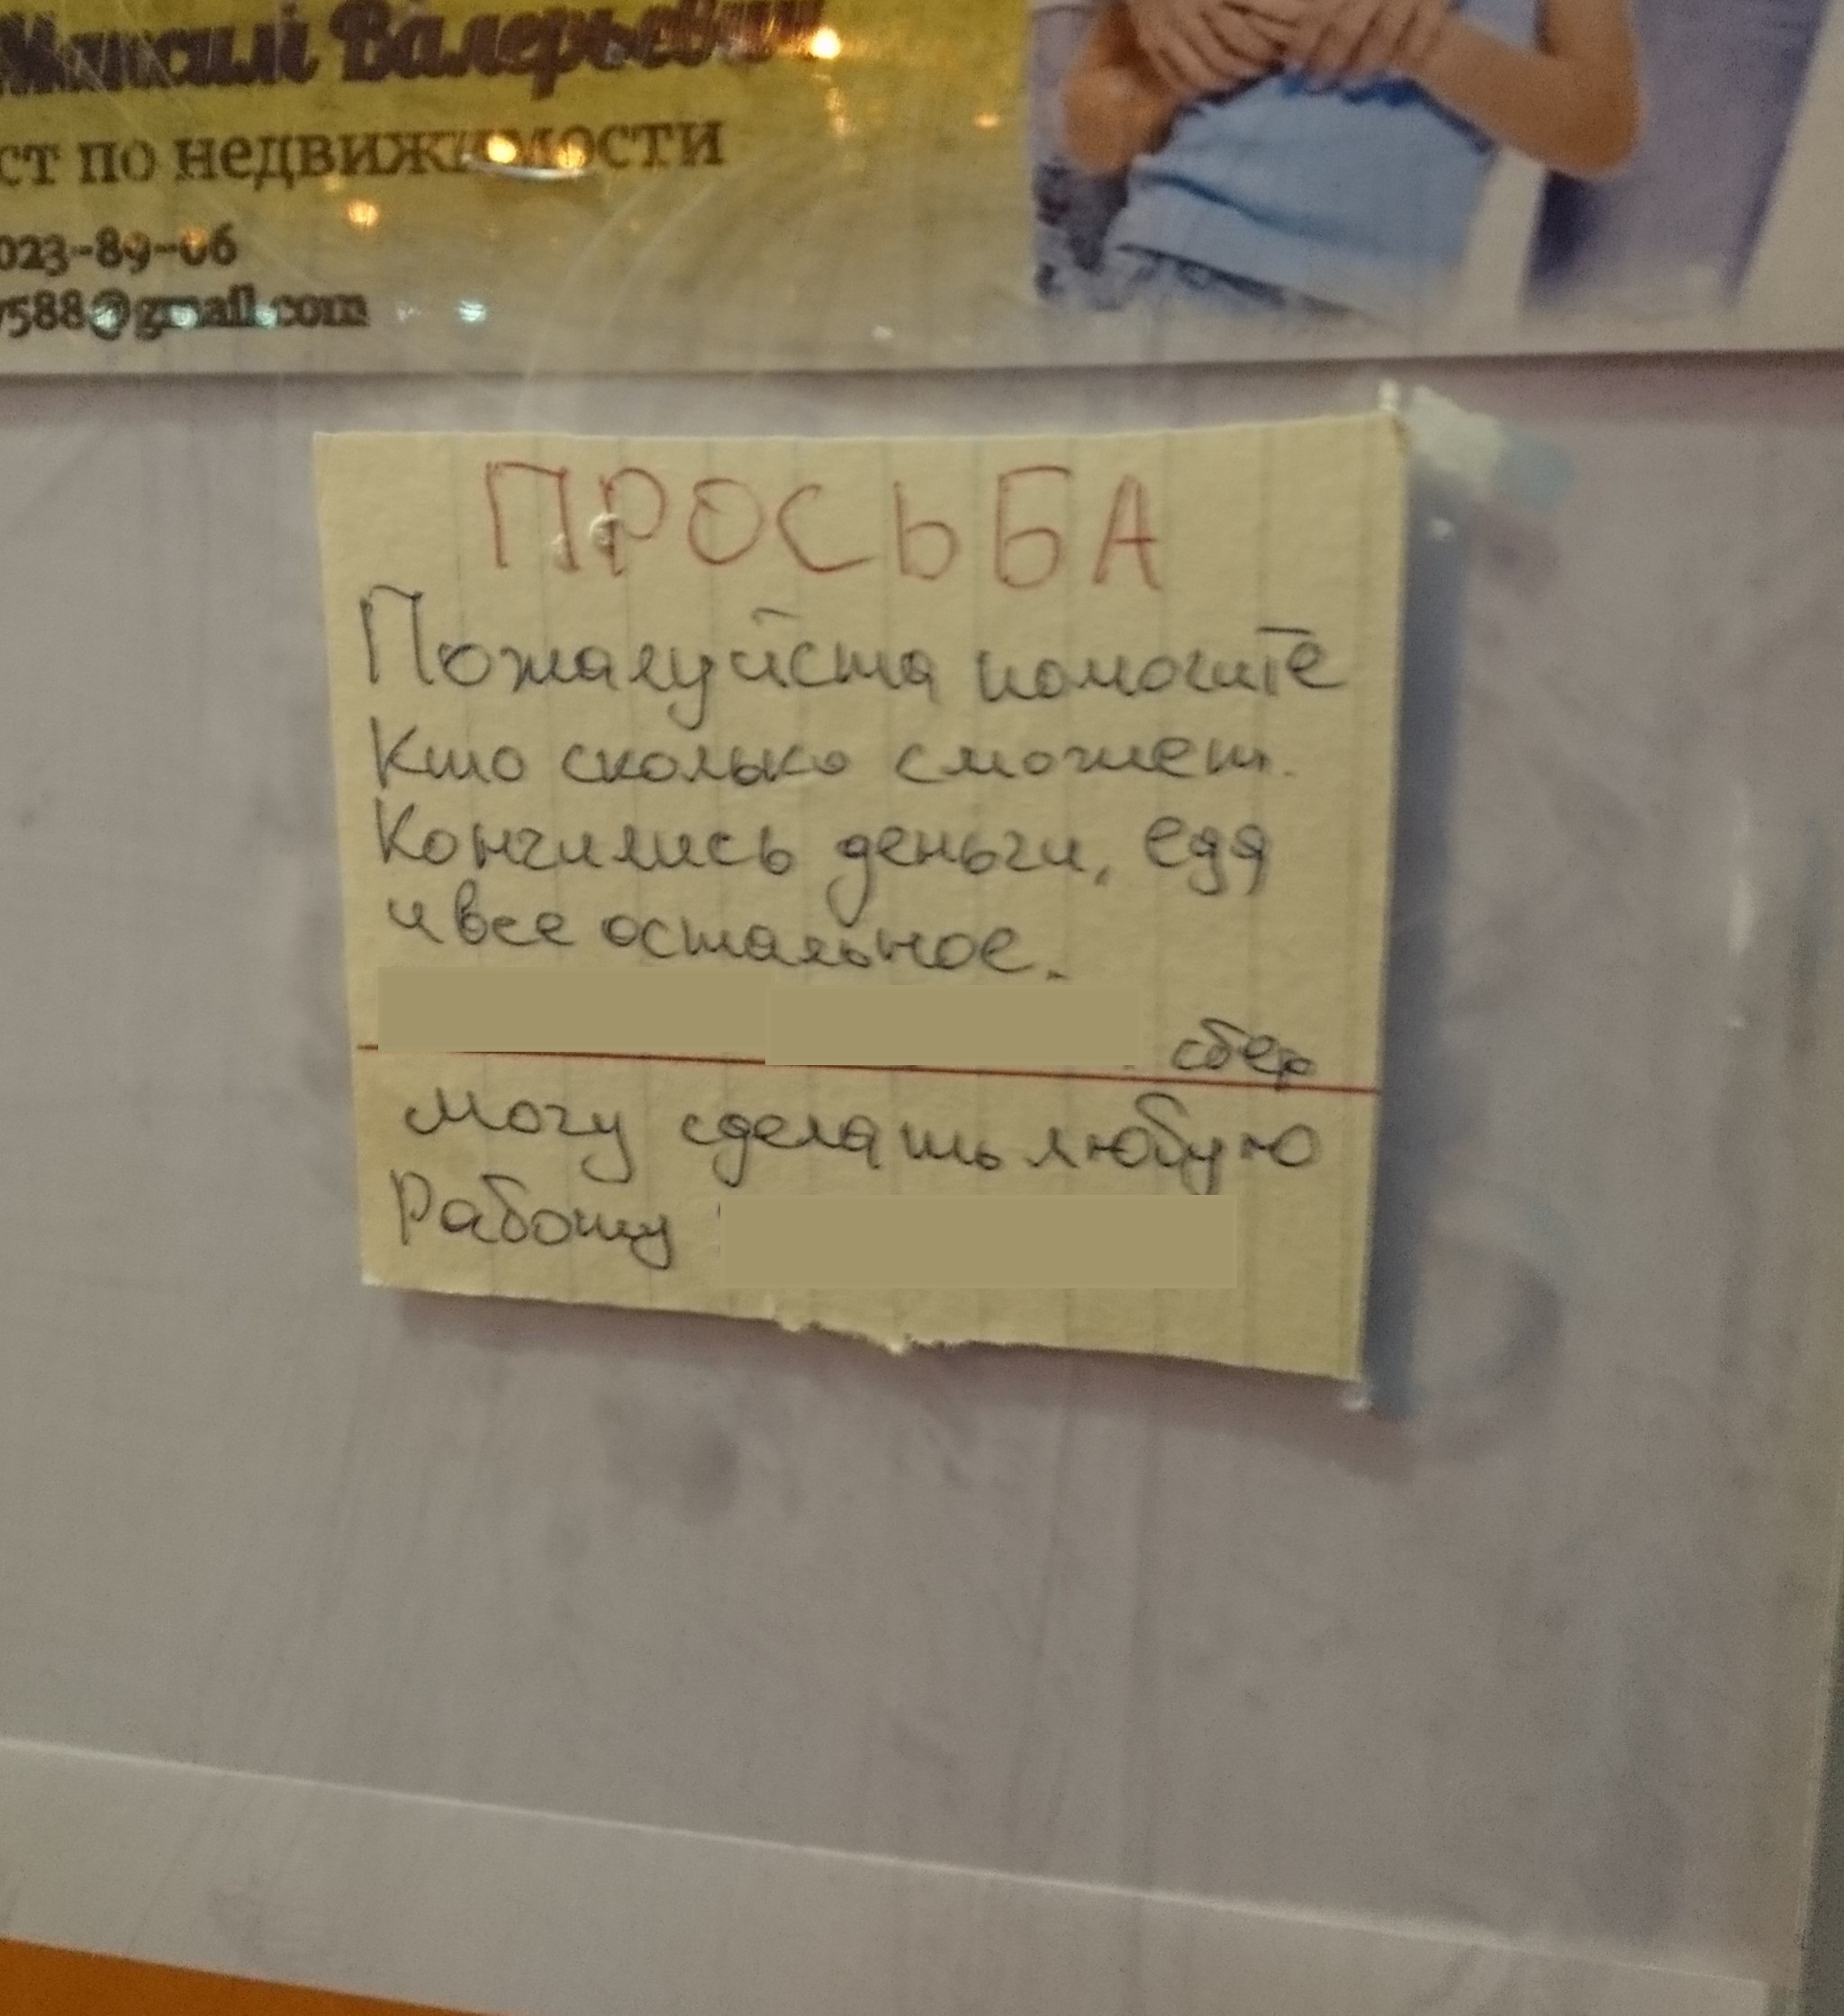 Максим Валерьевич
ст по недвижимости
023-89-06
588@gmail.com
ПРОСЬБА
Пожалуйста помогите
Кто сколько сможет.
Кончились деньги, еда
и все остальное.
сбер
Могу сделать любую
Работу